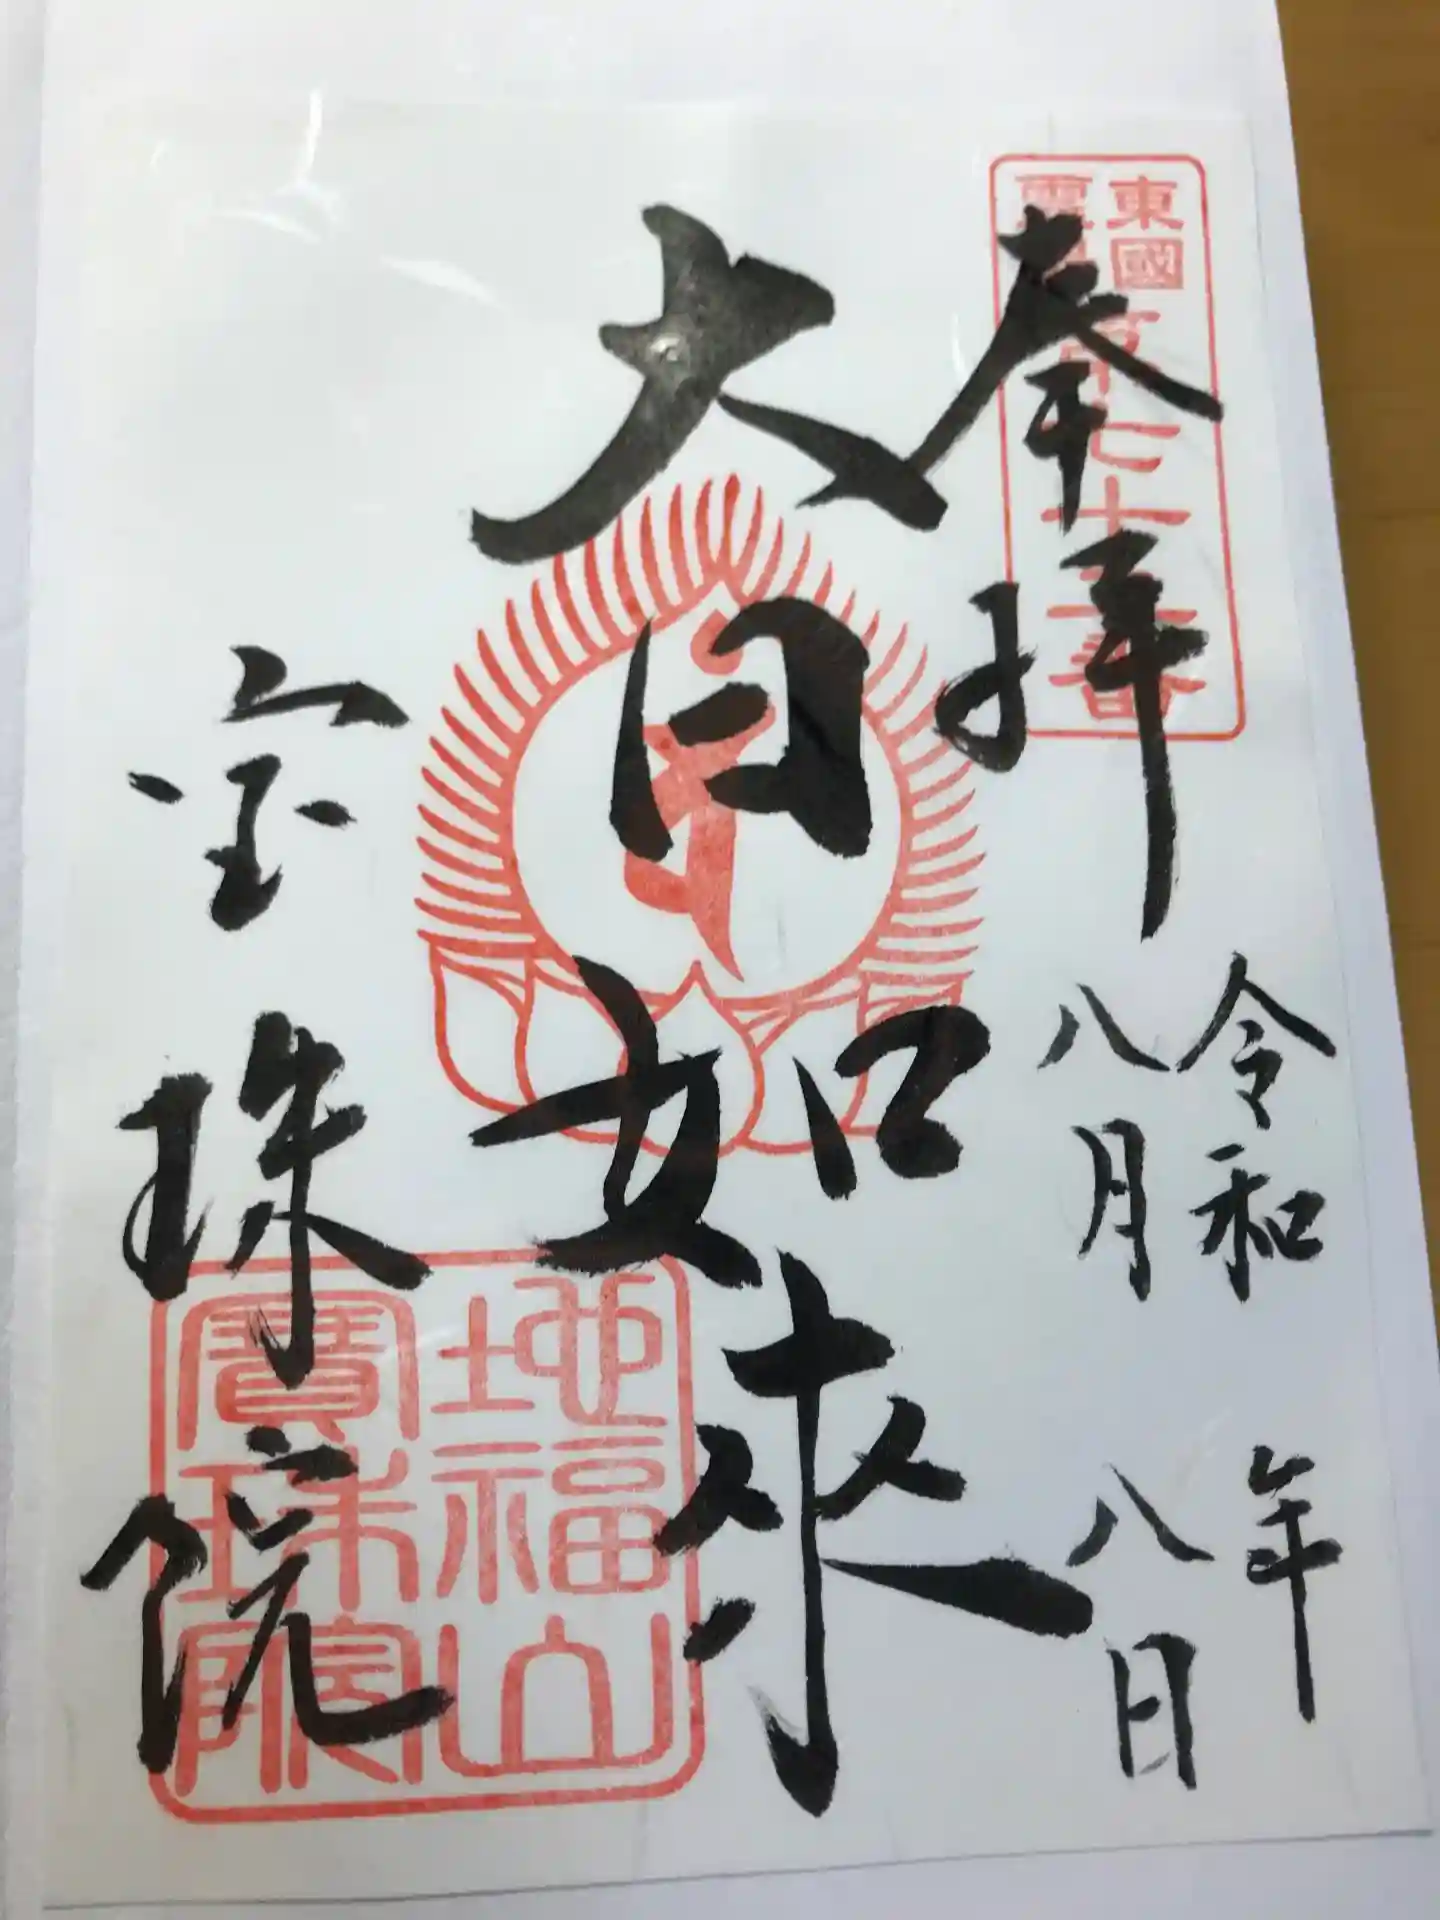 奉拝
東國
第七十三番
令和 年
八月八日
大日如来
宝珠院
地福山
寶珠院